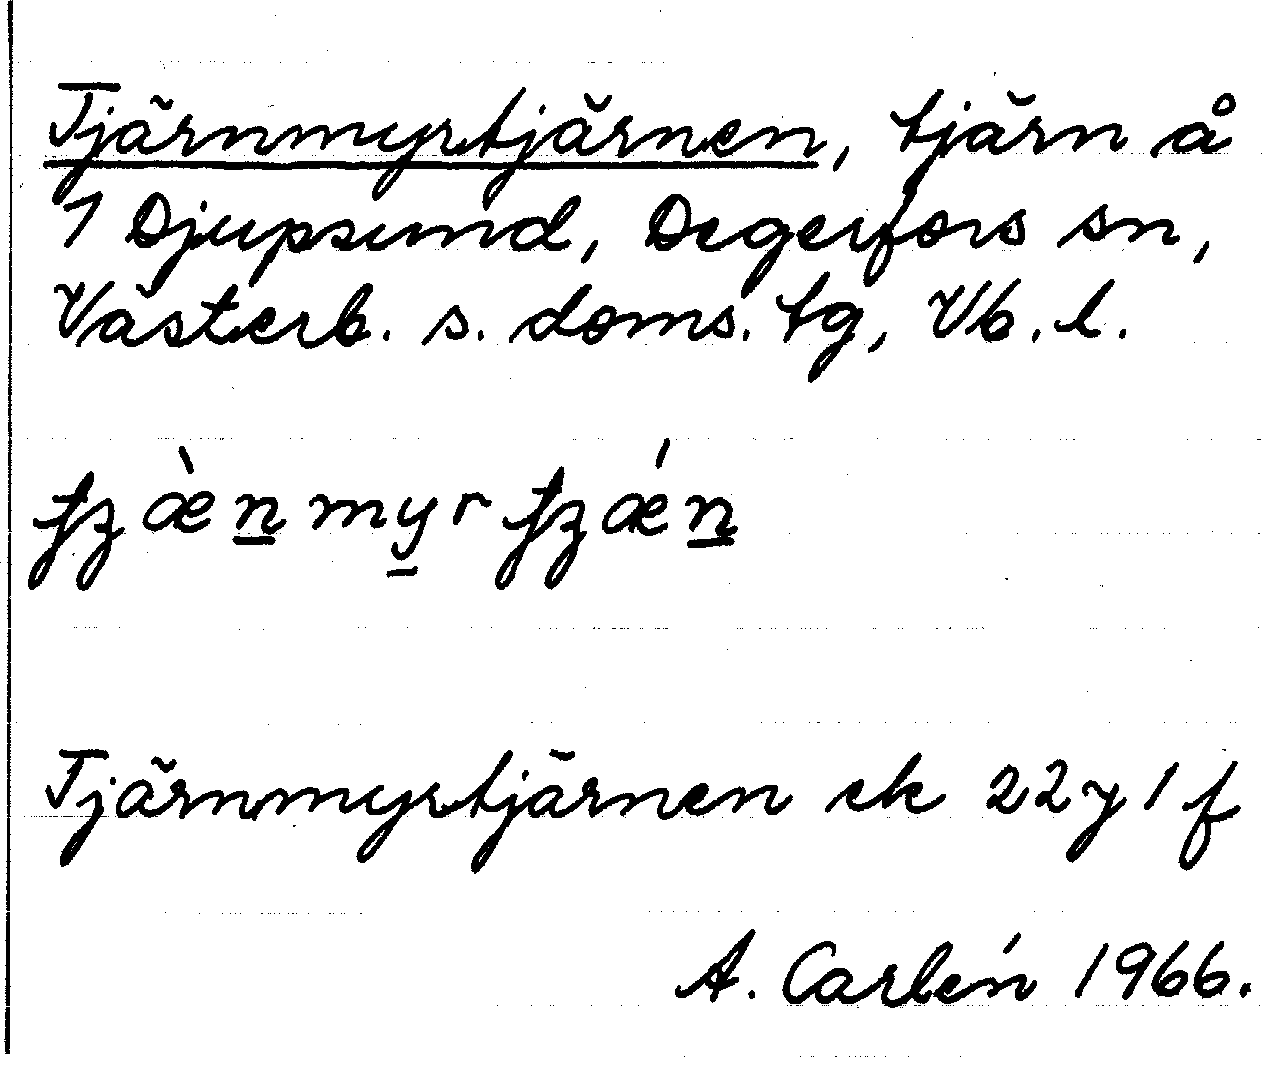 Tjärnmyrtjärnen, tjärn å
1 Djupsund, Degerfors sn,
Västerb. s. doms. tg, Vb. l.
Tjärnmyrtjärnen ek 22y1f
A. Carlén 1966.